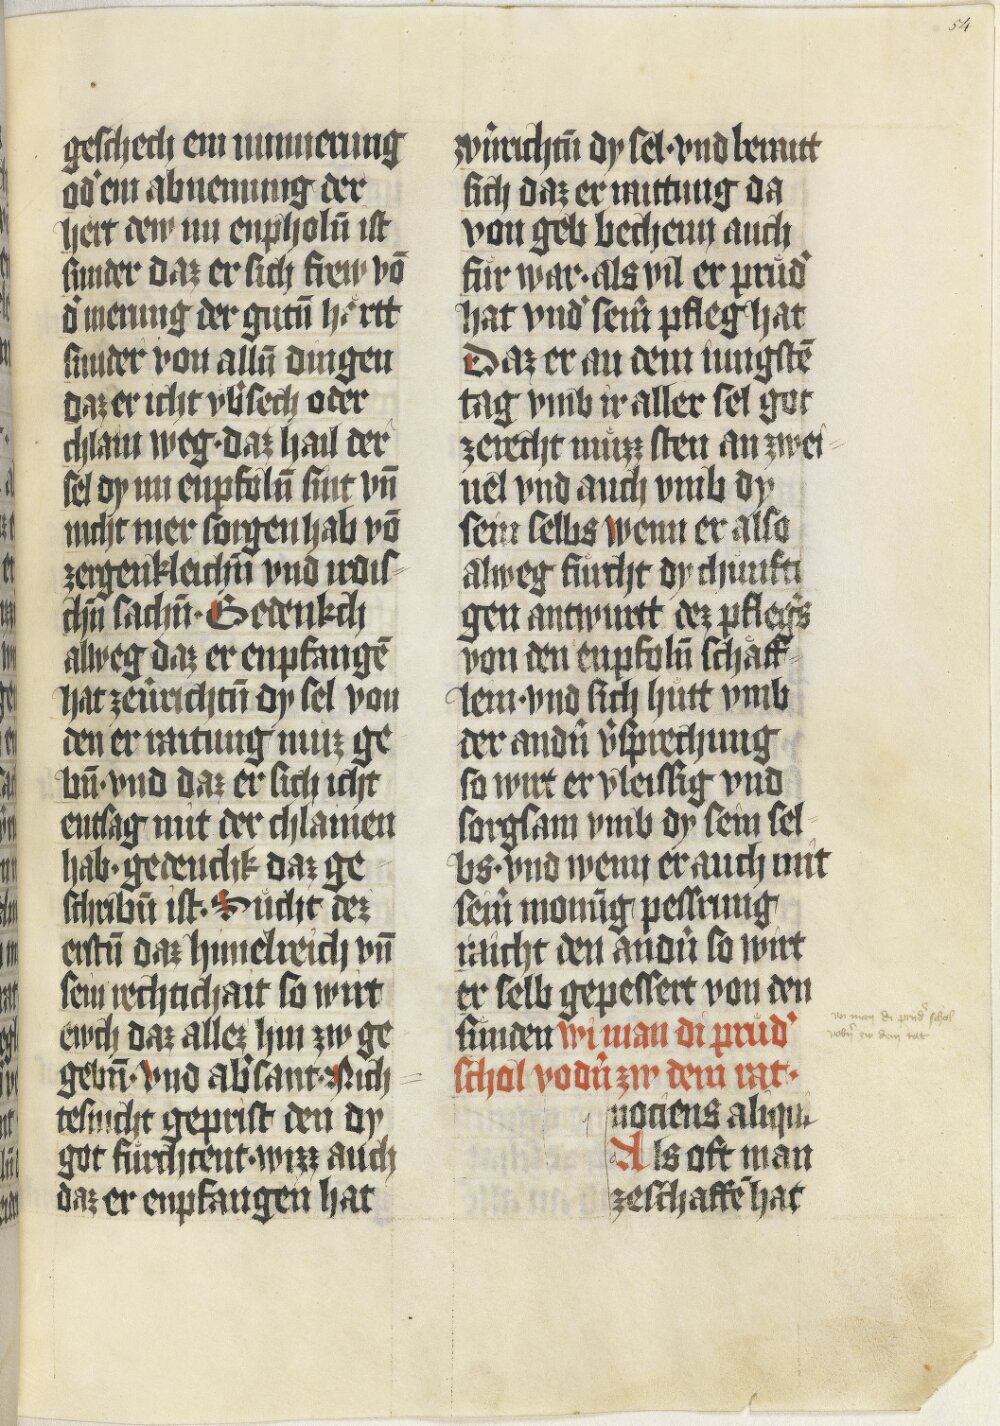 54
geschech ein minnerung
od' ein abnemung der
hert dew im enpholn̄ ist
sunder daz er sich frew vō
d' merung der gutn̄ hertt
sunder von alln̄ dingen
daz er icht vb̄sech oder
chlain weg · daz hail der
sel dy im enpfoln̄ sint vn̄
nicht mer sorgen hab vō
zergenkleichn̄ vnd irdis-
chn̄ sachn̄ · Gedenkch
alweg daz er enpfangē
hat zeūrichtn̄ dy sel von
den er raitung muz ge
bn̄ · vnd daz er sich icht
entsag mit der chlainen
hab · gedenchk daz ge
schribn̄ ist · Sucht dez
erstn̄ daz himelreich vn̄
sein rechtichait so wirt
ewch daz allez hin zw ge
gebn̄ · Vnd ab'sant · Nich
tesnicht geprist den dy
got furchtent · wizz auch
daz er enpfangen hat
zv̄urichtn̄ dy sel · vnd beraitt
sich daz er raittung da
von geb bechenn auch
fur war · als vil er prud'
hat vnd' seim̄ pfleg hat
Daz er an dem iungstē
tag vmb ir aller sel got
zerecht muzz sten an zwei-
uel vnd auch vmb dy
sein selbs wenn er also
alweg furcht dy chunfti
gen antwurtt dez pfleg's
von den enpfoln̄ schaff-
lein · vnd sich hutt vmb
der andn̄ v̄sprechung
so wirt er vleissig vnd
sorgsam vmb dy sein sel-
bs · vnd wenn er auch mit
seim̄ monūg pessrung
raicht den andn̄ so wirt
er selb gepessert von den
sunden wi man di prud'
schol vodn̄ zw dem rat ·
wi man di prud' schol
vodn̄ zw dem rat
nociens aliqui
Als oft man
zeschaffē hat